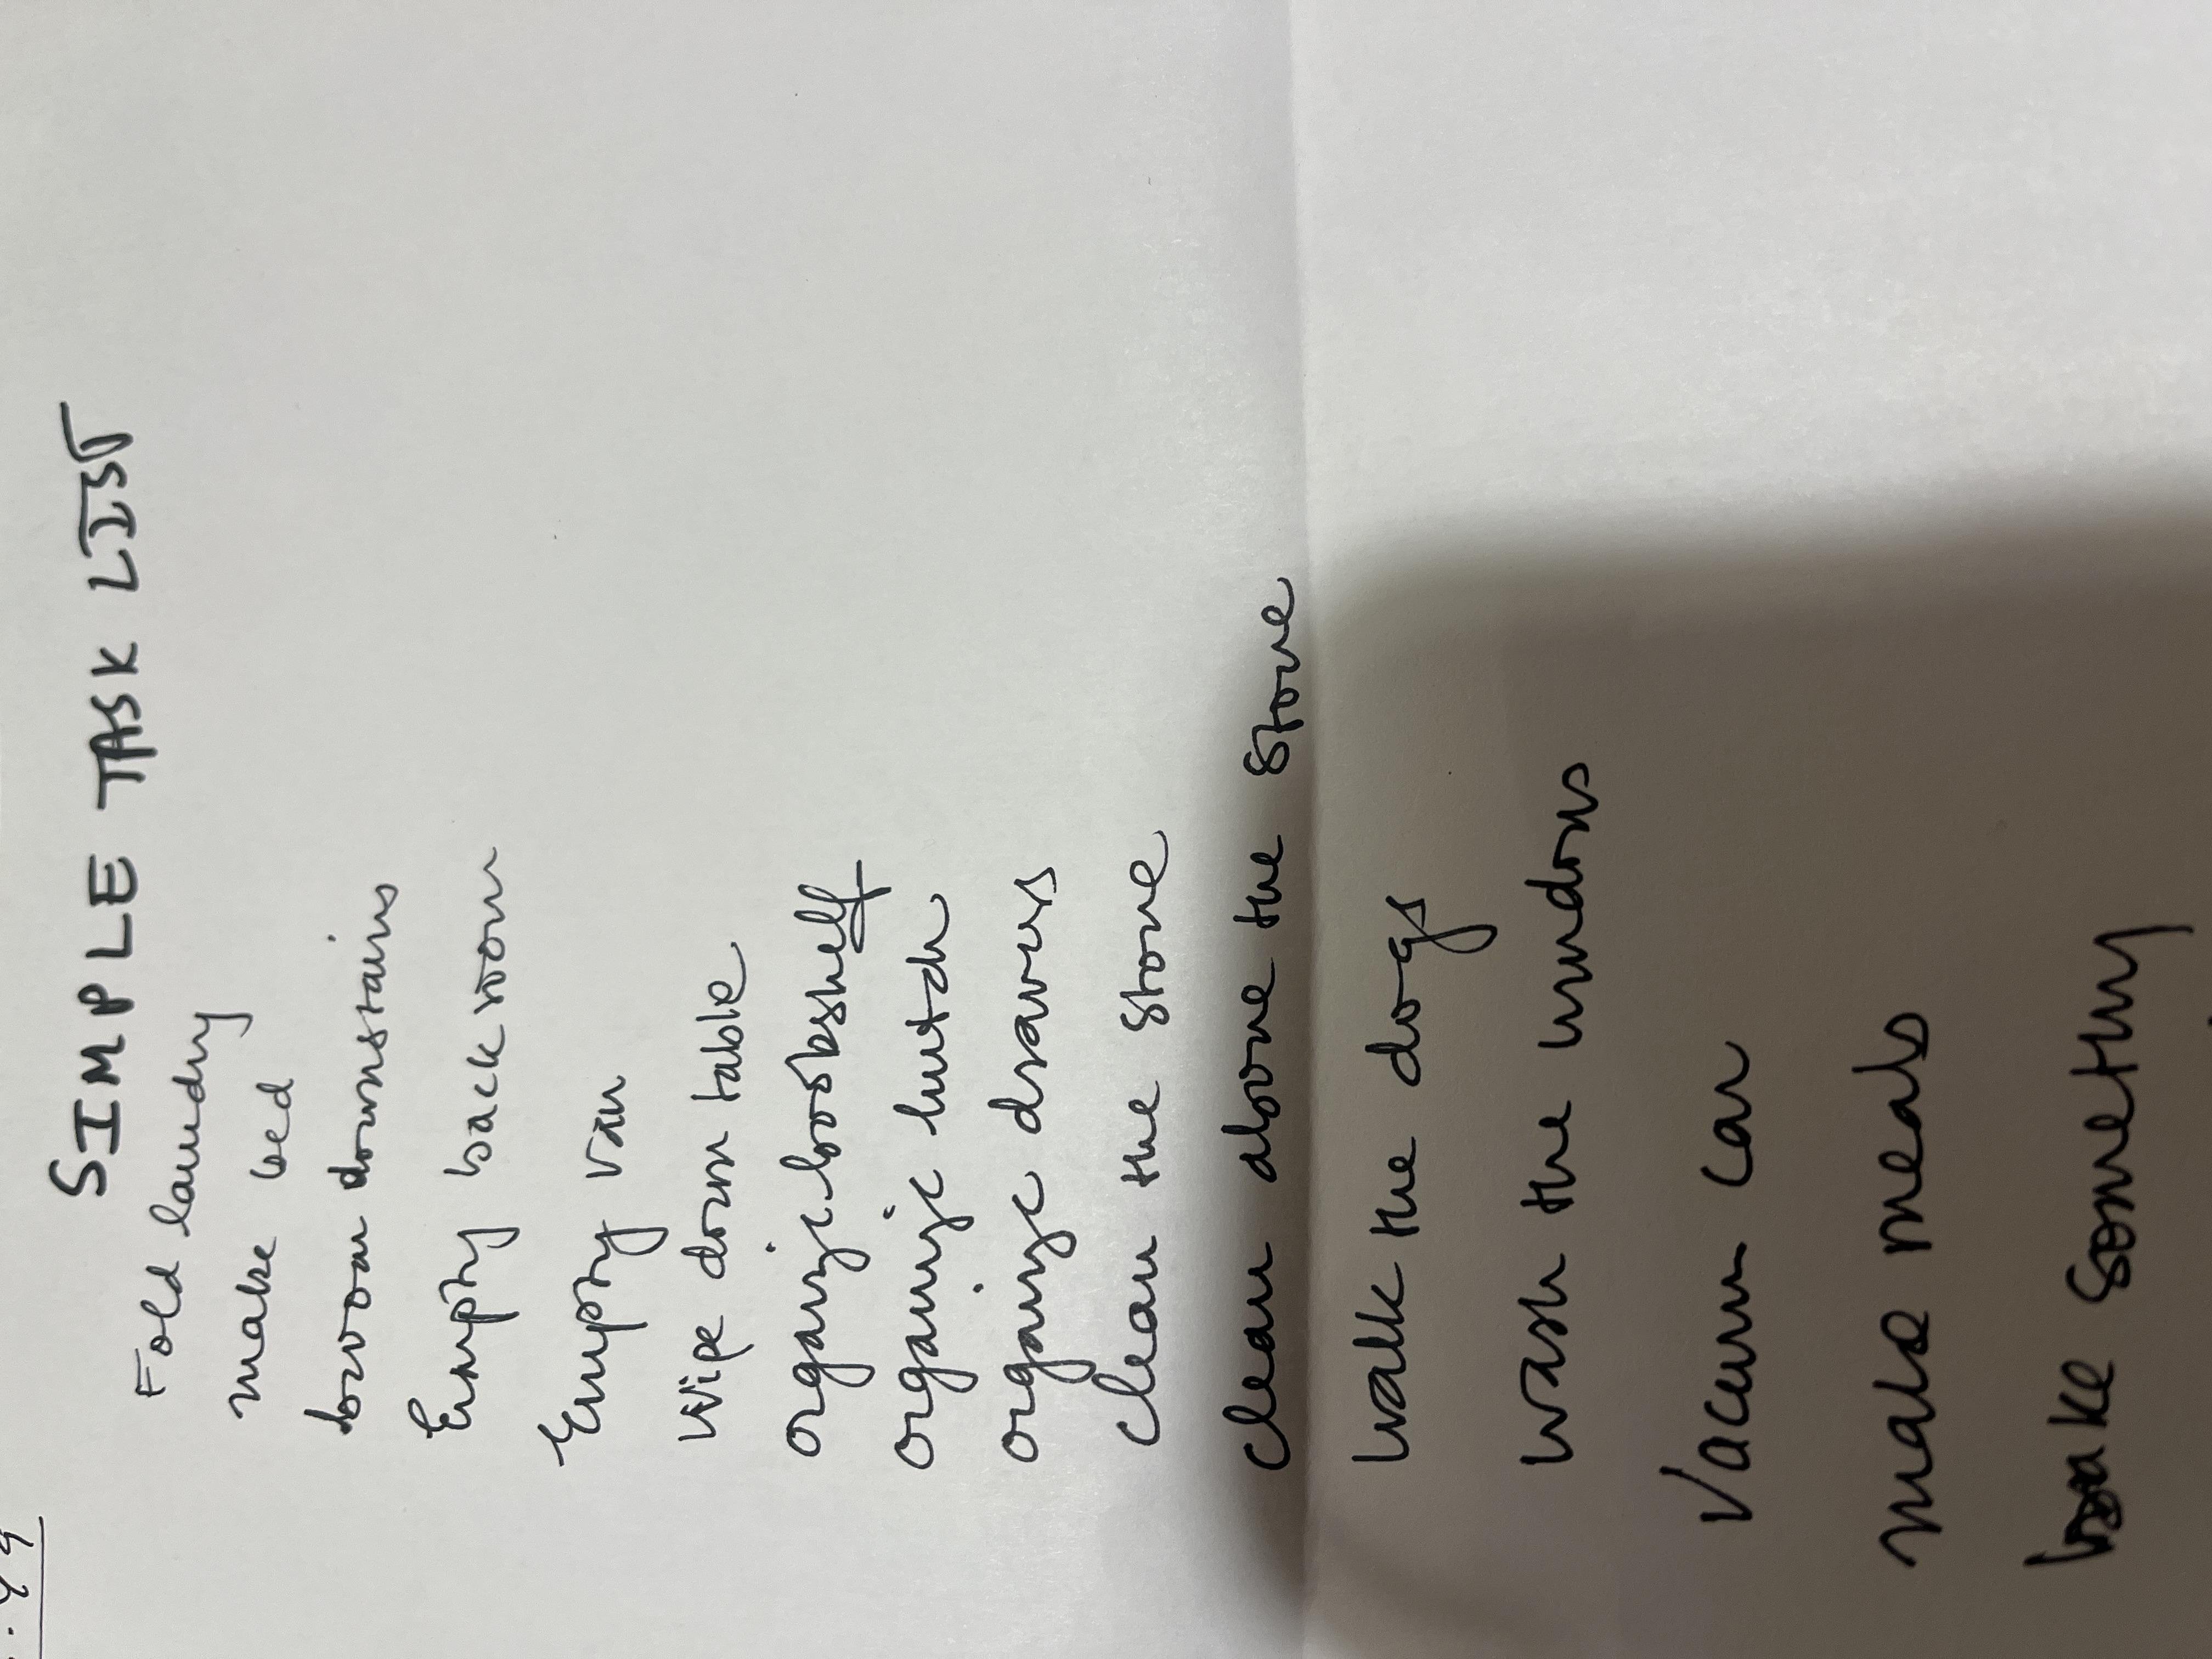 SIMPLE TASK LIST
Fold laundry
make bed
broom downstairs
Empty back room
Empty van
wipe down table
organize bookshelf
organize hutch
organize drawers
clean the stove
clean above the stove
walk the dogs
wash the windows
Vacuum car
make meals
bake something